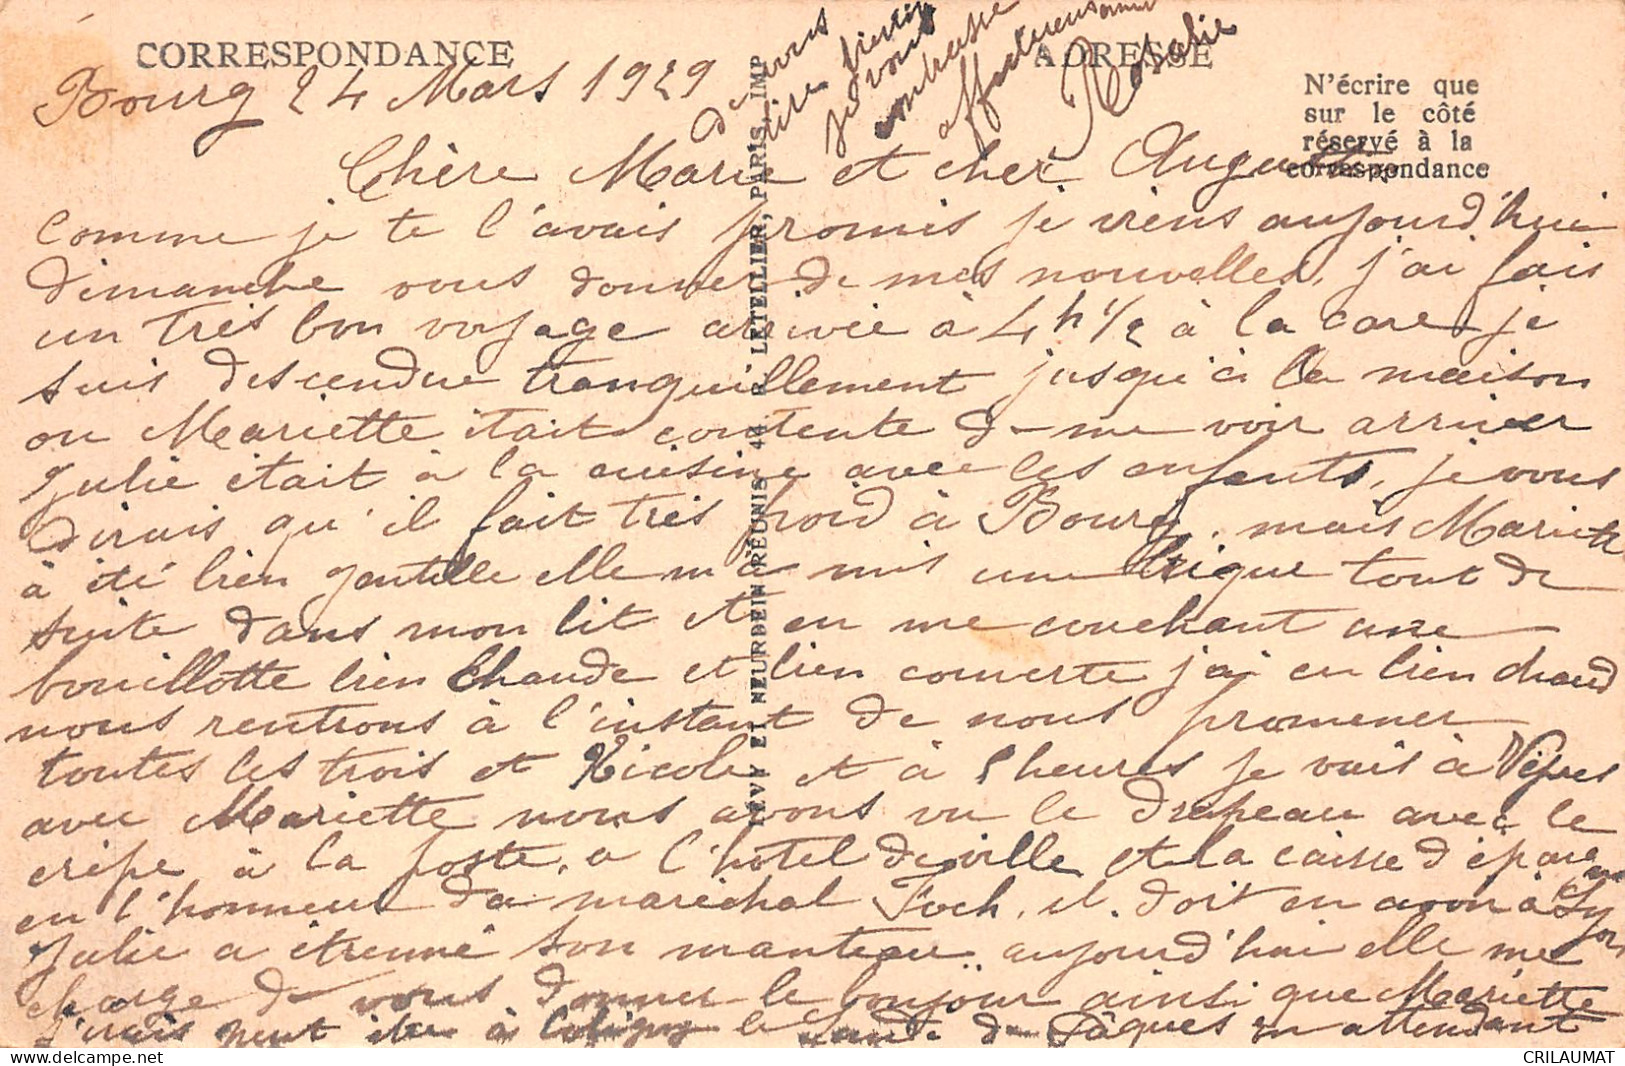 CORRESPONDANCE
ADRESSE
N'écrire que
sur le côté
réservé à la
correspondance
LÉVY ET NEURDEIN RÉUNIS, 44, R. LETELLIER, PARIS, IMP
Bourg 24 Mars 1929
Chère Marie et cher Auguste
comme je te l'avais promis je viens aujourd'hui
dimanche vous donner de mes nouvelles, j'ai fais
un très bon voyage arrivée à 4 h 1/2 à la care je
suis descendue tranquillement jusqu'à la maison
ou Mariette était contente de me voir arriver
Julie était à la cuisine avec les enfants, je vous
dirais qu'il fait très froid à Bourg, mais Mariette
à été bien gentille elle m'a mis une brique tout de
suite dans mon lit et en me couchant une
bouillotte bien chaude et bien couverte j'ai eu bien chaud
nous rentrons à l'instant de nous promener
toutes les trois et Nicole et à 5 heures je vais à Vêpres
avec Mariette nous avons vu le drapeau avec le
crêpe à la poste, a l'hotel de ville et la caisse d'éparne
en l'honneur du maréchal Foch, il doit en avoir à Lyon
Julie a étrenné son manteau aujourd'hui elle me
charge de vous donner le bonjour ainsi que Mariette
j'irais peut être à Coligny le lundi de Pâques en attendant
de vous
lire
je vous
embrasse
affectueusement
Rosalie
CRILAUMAT